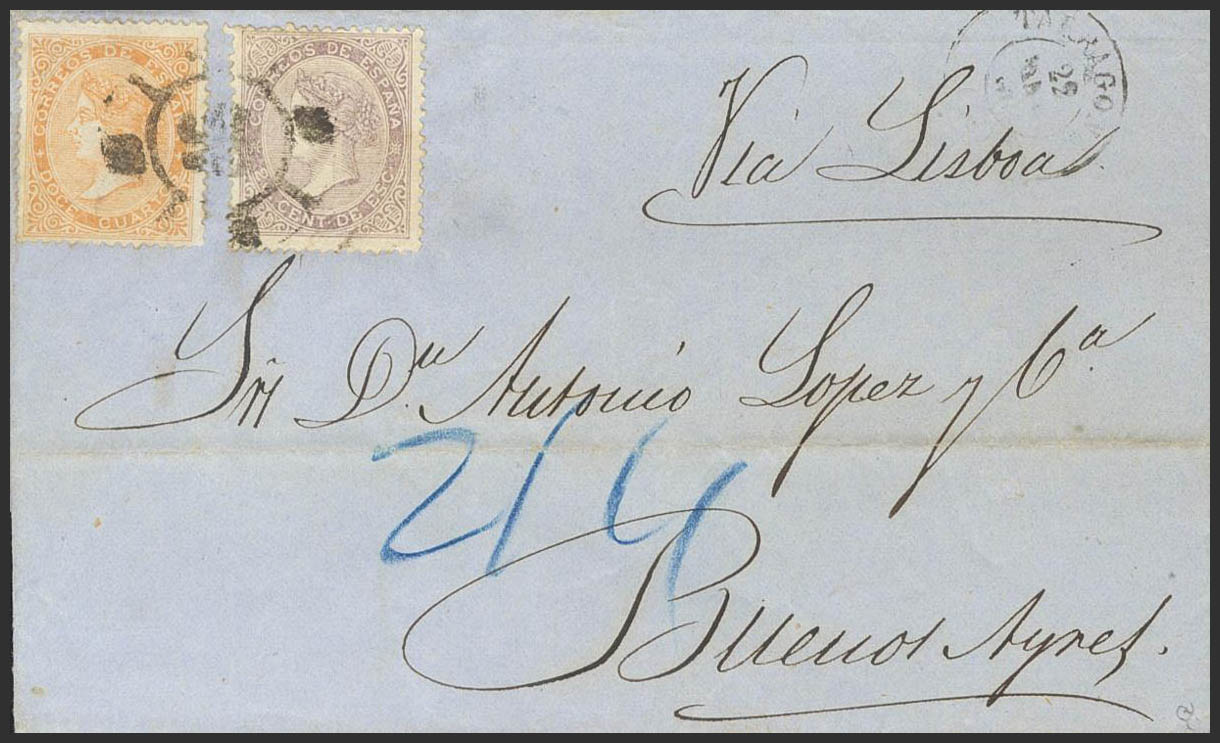 CORREOS DE ESPAÑA
DOCE CUART
CORREOS DE ESPAÑA
CENT. DE ESC.
TARRAGONA
25
Via Lisboa
Sr. Dn. Antonio Lopez y Ca.
24
Buenos Ayres.